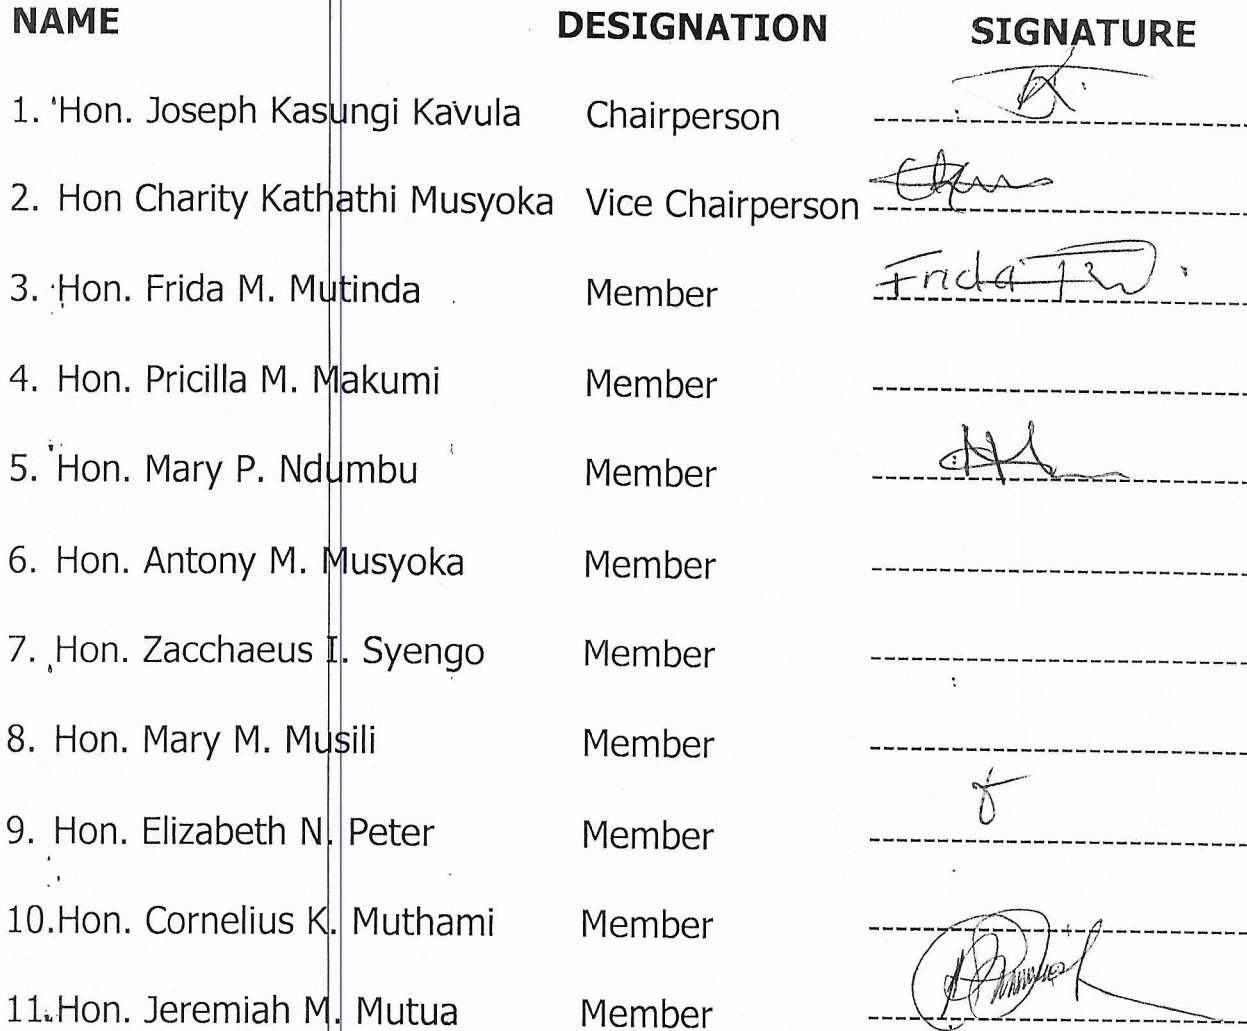 NAME DESIGNATION SIGNATURE
1. Hon. Joseph Kasungi Kavula Chairperson
2. Hon Charity Kathathi Musyoka Vice Chairperson
3. Hon. Frida M. Mutinda Member Frida
4. Hon. Pricilla M. Makumi Member
5. Hon. Mary P. Ndumbu Member
6. Hon. Antony M. Musyoka Member
7. Hon. Zacchaeus I. Syengo Member
8. Hon. Mary M. Musili Member
9. Hon. Elizabeth N. Peter Member
10.Hon. Cornelius K. Muthami Member
11.Hon. Jeremiah M. Mutua Member